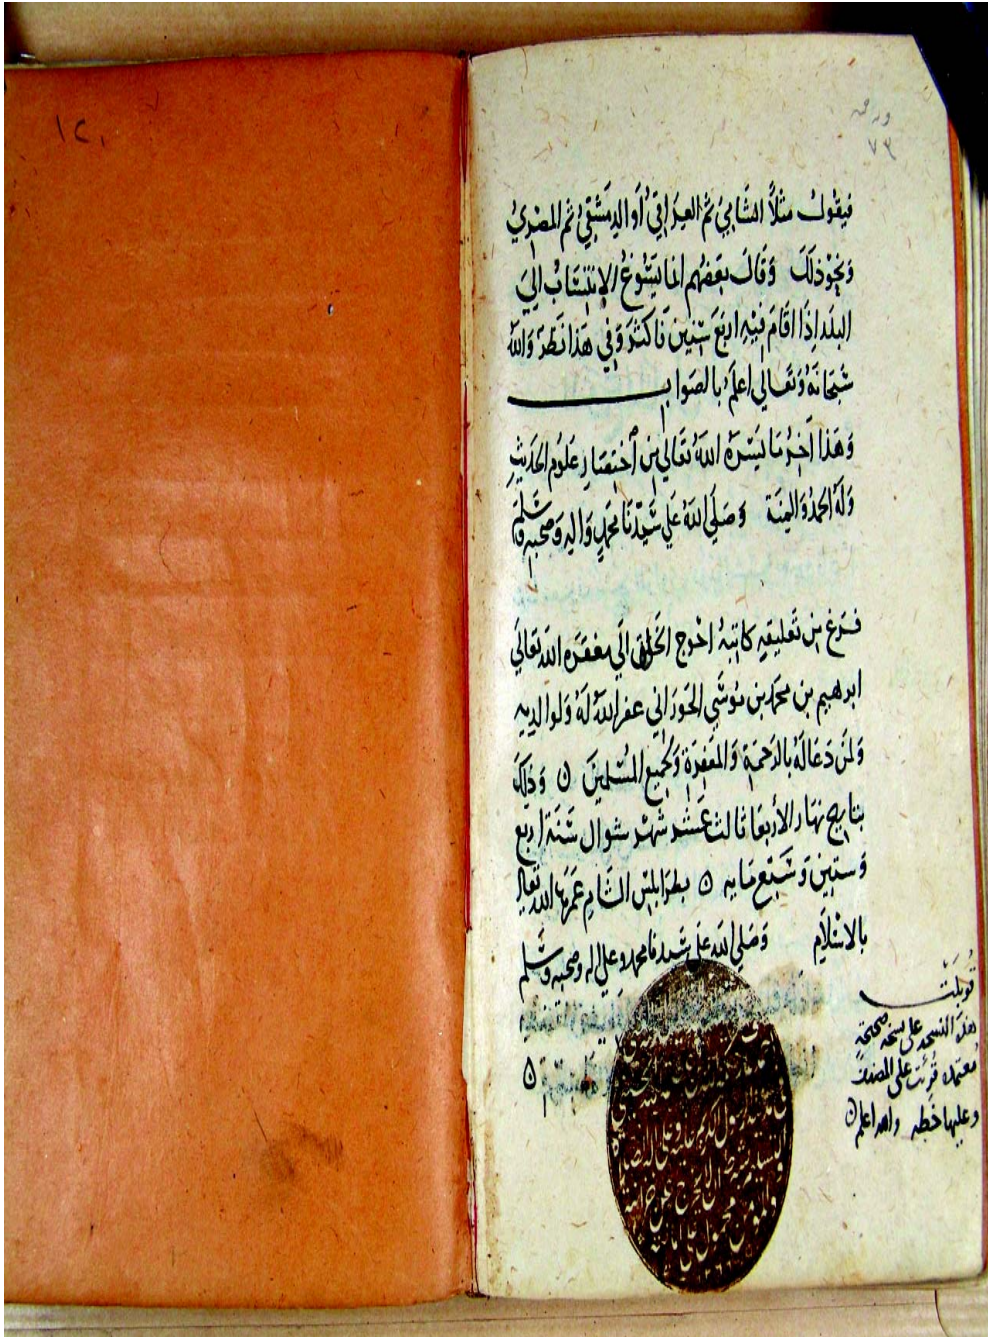 ورقه
٧٣
فيقول مثلاً الشامي ثم العراقي أو الدمشقي ثم المصري
ونحو ذلك وقال بعضهم انما يسوغ الانتساب الي
البلد اذا اقام فيه اربع سنين فاكثر وفي هذا نظر والله
سبحانه وتعالي اعلم بالصواب
وهذا آخر ما يسره الله تعالي من اختصار علوم الحديث
وله الحمد والمنة وصلي الله علي سيدنا محمد واله وصحبه وسلم
فرغ من تعليقه كاتبه احوج الخلق الي مغفرة الله تعالي
ابرهيم بن محمد بن موسي الحوراني عفر الله له ولوالديه
ولمن دعا له بالرحمة والمغفرة ولجميع المسلمين ۞ وذلك
بتاريخ نهار الأربعا ثالث عشر شهر شوال سنة اربع
وستين وسبع مايه ۞ بطرابلس الشام عمرها الله تعالي
بالاسلام وصلي الله علي سيدنا محمد وعلي اله وصحبه وسلم
قوبلت
هذه النسخه على نسخه صحيحه
معتمده قرئت على المصنف
وعليها خطه والله اعلم ۞
١٢١